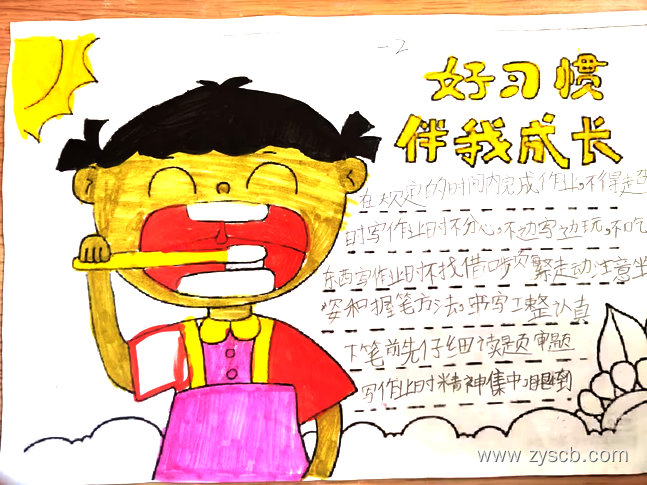 -2
好习惯
伴我成长
在规定的时间内完成作业。不得超
时写作业时不分心。不边写边玩。不吃
东西写作业时不找借口频繁走动注意坐
姿和握笔方法。书写工整认真
下笔前先仔细读题审题
写作业时精神集中。眼到
www.zyscb.com